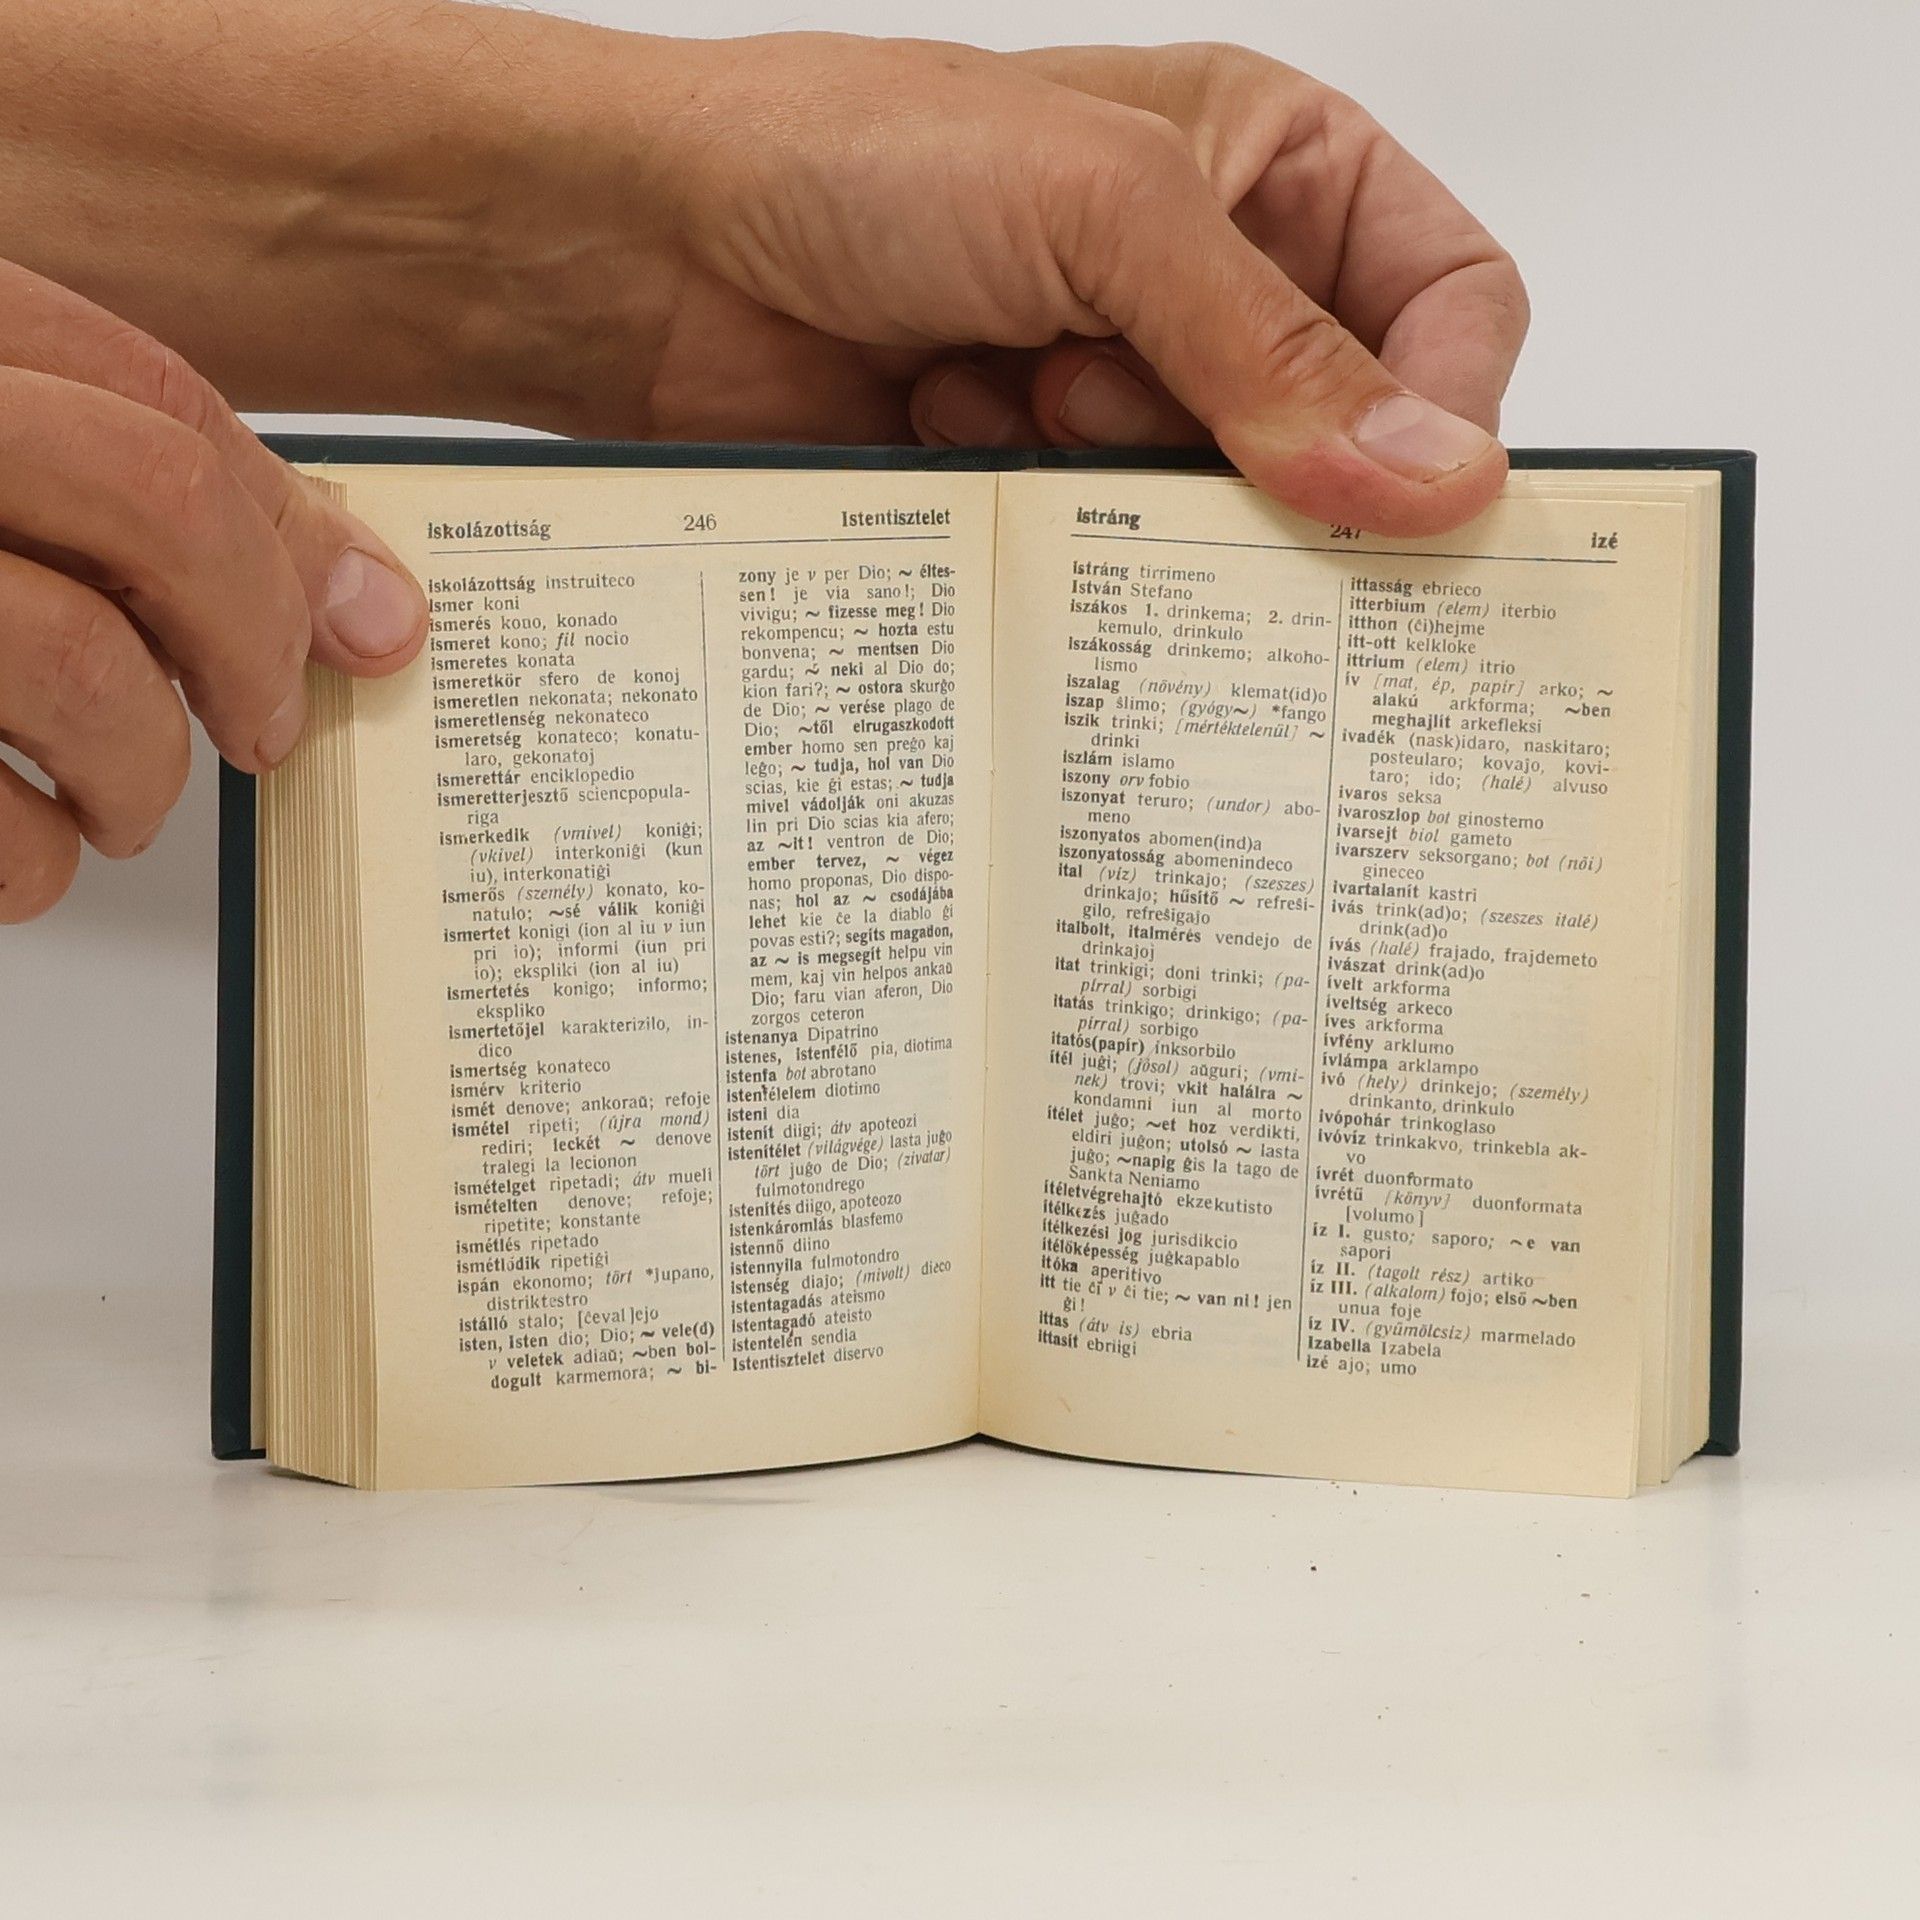 iskolázottság 246 Istentisztelet
iskolázottság instruiteco
ismer koni
ismerés kono, konado
ismeret kono; fil nocio
ismeretes konata
ismeretkör sfero de konoj
ismeretlen nekonata; nekonato
ismeretlenség nekonateco
ismeretség konateco; konatu-
laro, gekonatoj
ismerettár enciklopedio
ismeretterjesztő sciencpopula-
riga
ismerkedik (vmivel) koniĝi;
(vkivel) interkoniĝi (kun
iu), interkonatiĝi
ismerős (személy) konato, ko-
natulo; ~sé válik koniĝi
ismertet konigi (ion al iu v iun
pri io); informi (iun pri
io); ekspliki (ion al iu)
ismertetés konigo; informo;
ekspliko
ismertetőjel karakterizilo, in-
dico
ismertség konateco
ismérv kriterio
ismét denove; ankoraŭ; refoje
ismétel ripeti; (újra mond)
rediri; leckét ~ denove
tralegi la lecionon
ismételget ripetadi; átv mueli
ismételten denove; refoje;
ripetite; konstante
ismétlés ripetado
ismétlődik ripetiĝi
ispán ekonomo; tört *ĵupano,
distriktestro
istálló stalo; [ĉeval]ejo
isten, Isten dio; Dio; ~ vele(d)
v veletek adiaŭ; ~ben bol-
dogult karmemora; ~ bi-
zony je v per Dio; ~ éltes-
sen! je via sano!; Dio
vivigu; ~ fizesse meg! Dio
rekompencu; ~ hozta estu
bonvena; ~ mentsen Dio
gardu; ~ neki al Dio do;
kion fari?; ~ ostora skurĝo
de Dio; ~ verése plago de
Dio; ~től elrugaszkodott
ember homo sen preĝo kaj
leĝo; ~ tudja, hol van Dio
scias, kie ĝi estas; ~ tudja
mivel vádolják oni akuzas
lin pri Dio scias kia afero;
az ~it! ventron de Dio;
ember tervez, ~ végez
homo proponas, Dio dispo-
nas; hol az ~ csodájába
lehet kie ĉe la diablo ĝi
povas esti?; segíts magadon,
az ~ is megsegít helpu vin
mem, kaj vin helpos ankaŭ
Dio; faru vian aferon, Dio
zorgos ceteron
istenanya Dipatrino
istenes, istenfélő pia, diotima
istenfa bot abrotano
istenfélelem diotimo
isteni dia
istenít diigi; átv apoteozi
istenítélet (világvége) lasta juĝo
tört juĝo de Dio; (zivatar)
fulmotondrego
istenítés diigo, apoteozo
istenkáromlás blasfemo
istennő diino
istennyila fulmotondro
istenség diajo; (mivolt) dieco
istentagadás ateismo
istentagadó ateisto
istentelen sendia
Istentisztelet diservo
istráng 247 izé
istráng tirrimeno
István Stefano
iszákos 1. drinkema; 2. drin-
kemulo, drinkulo
iszákosság drinkemo; alkoho-
lismo
iszalag (növény) klemat(id)o
iszap ŝlimo; (gyógy~) *fango
iszik trinki; [mértéktelenül] ~
drinki
iszlám islamo
iszony orv fobio
iszonyat teruro; (undor) abo-
meno
iszonyatos abomen(ind)a
iszonyatosság abomenindeco
ital (víz) trinkaĵo; (szeszes)
drinkaĵo; hűsítő ~ refreŝi-
gilo, refreŝigaĵo
italbolt, italmérés vendejo de
drinkaĵoj
itat trinkigi; doni trinki; (pa-
pírral) sorbigi
itatás trinkigo; drinkigo; (pa-
pírral) sorbigo
itatós(papír) inksorbilo
ítél juĝi; (jósol) aŭguri; (vmi-
nek) trovi; vkit halálra ~
kondamni iun al morto
ítélet juĝo; ~et hoz verdikti,
eldiri juĝon; utolsó ~ lasta
juĝo; ~napig ĝis la tago de
Sankta Neniamo
ítéletvégrehajtó ekzekutisto
ítélkezés juĝado
ítélkezési jog jurisdikcio
ítélőképesség juĝkapablo
itóka aperitivo
itt tie ĉi v ĉi tie; ~ van ni! jen
ĝi!
ittas (átv is) ebria
ittasít ebriigi
ittasság ebrieco
itterbium (elem) iterbio
itthon (ĉi)hejme
itt-ott kelkloke
ittrium (elem) itrio
ív [mat, ép, papír] arko; ~
alakú arkforma; ~ben
meghajlít arkefleksi
ivadék (nask)idaro, naskitaro;
posteularo; kovajo, kovi-
taro; ido; (halé) alvuso
ivaros seksa
ivaroszlop bot ginostemo
ivarsejt biol gameto
ivarszerv seksorgano; bot (női)
gineceo
ivartalanít kastri
ivás trink(ad)o; (szeszes italé)
drink(ad)o
ívás (halé) frajado, frajdemeto
ivászat drink(ad)o
ívelt arkforma
íveltség arkeco
íves arkforma
ívfény arklumo
ívlámpa arklampo
ivó (hely) drinkejo; (személy)
drinkanto, drinkulo
ivópohár trinkoglaso
ivóvíz trinkakvo, trinkebla ak-
vo
ívrét duonformato
ívrétű [könyv] duonformata
[volumo]
íz I. gusto; saporo; ~e van
sapori
íz II. (tagolt rész) artiko
íz III. (alkalom) fojo; első ~ben
unua foje
íz IV. (gyümölcsíz) marmelado
Izabella Izabela
izé aĵo; umo